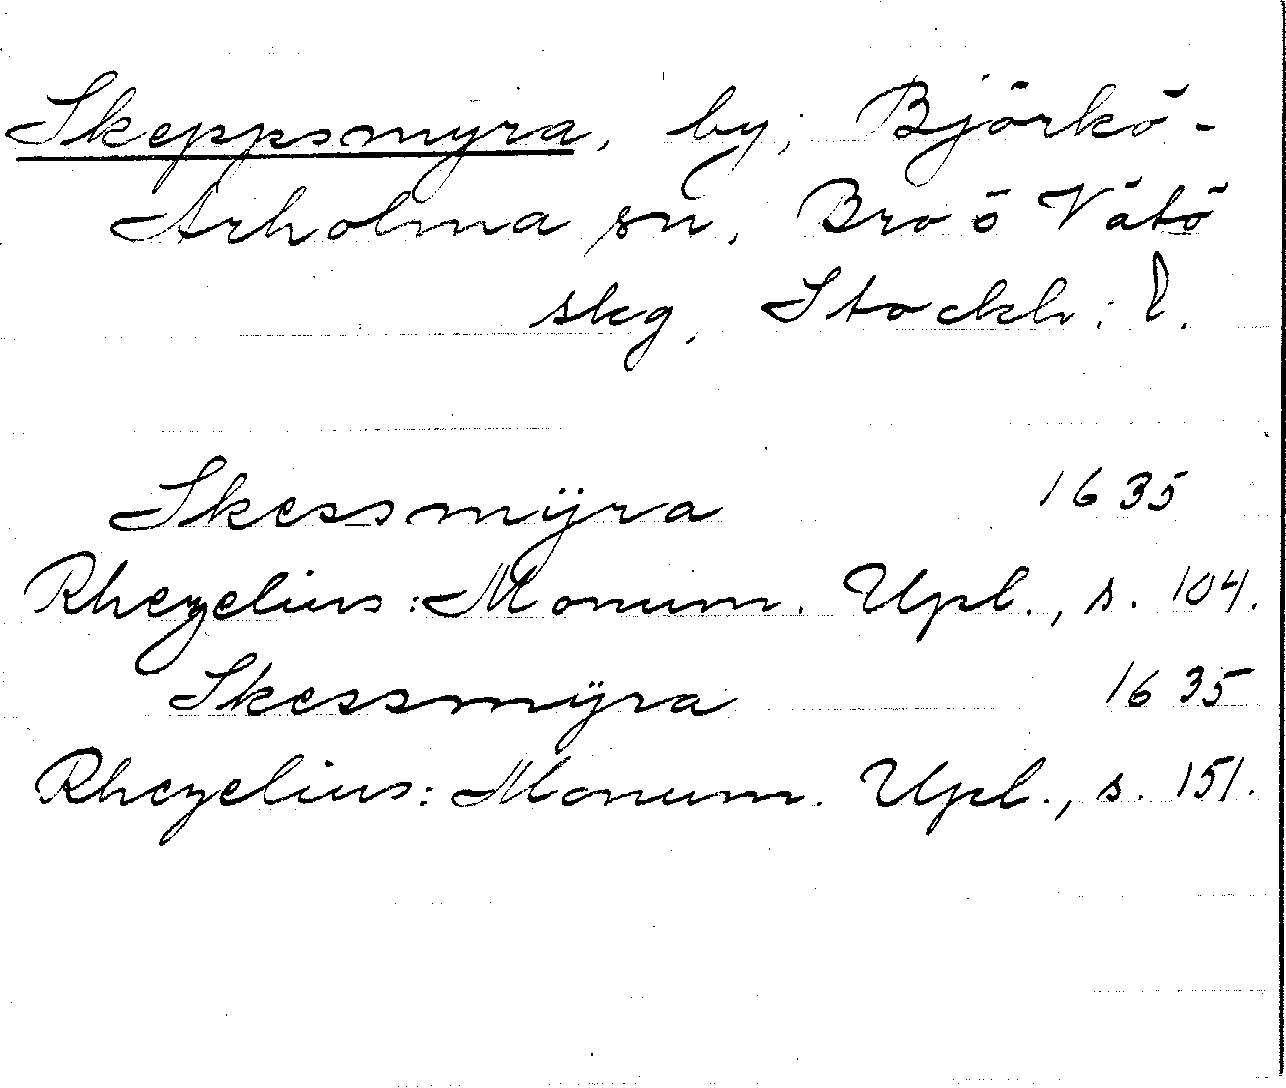 Skeppsmyra, by, Björkö-
Arholma sn, Bro o Vätö
skg, Stockh:s l.
Skessmÿra 1635
Rhezelius: Monum. Upl., s. 104.
Skessmÿra 1635
Rhezelius: Monum. Upl., s. 151.